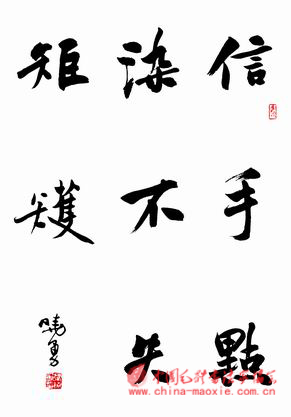 信手點
染不失
矩矱
曉勇
www.china-maoxie.com